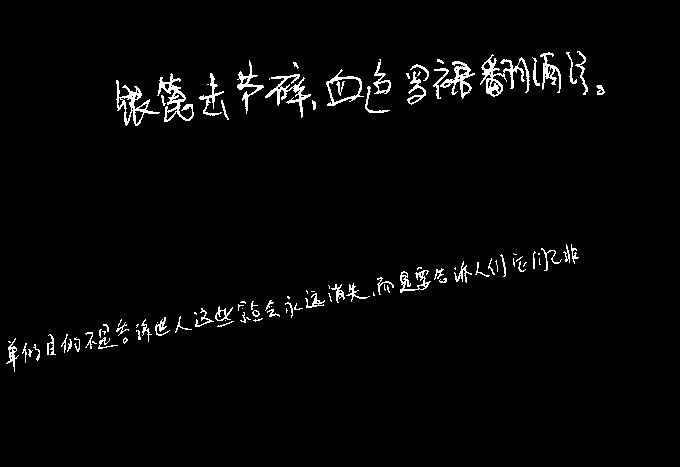 银篦击节碎,血色罗裙翻酒污。
单的目的不是告诉世人这些景点会永远消失,而是要告诉人们它们已非